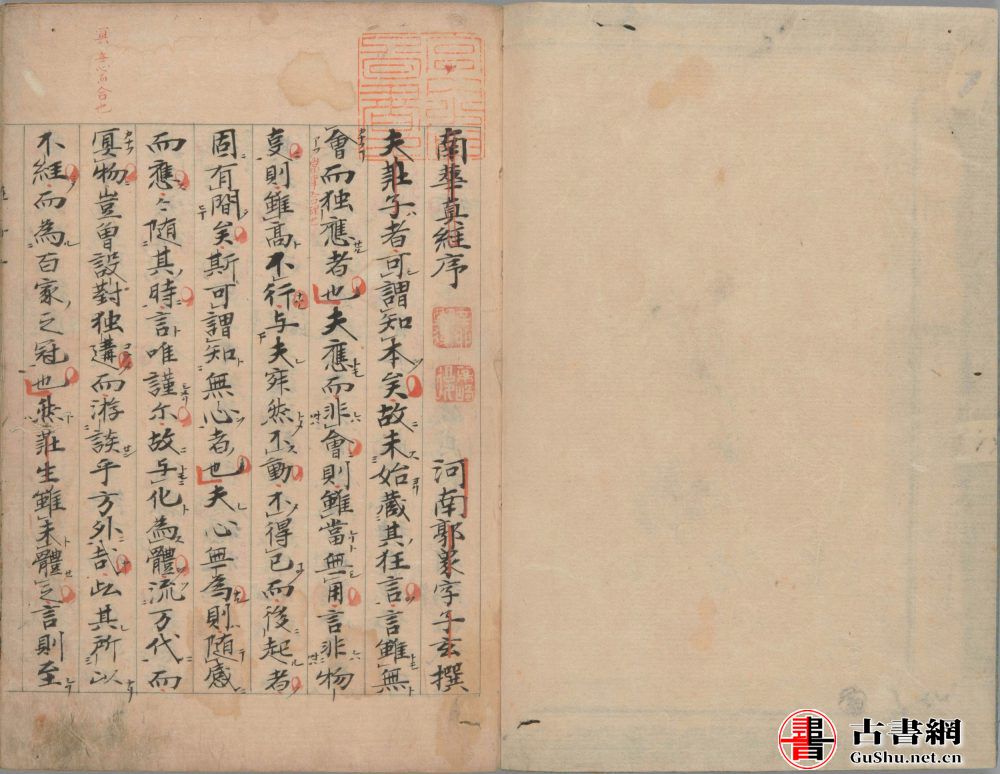 南華真經序 河南郭象字子玄撰
夫莊子者可謂知本矣故未始蔵其狂言言雖無
會而独應者也夫應而非會則雖當無用言非物
事則雖高不行与夫寂然不動不得已而後起者
固有間矣斯可謂知無心者也夫心無為則随感
而應々随其時言唯謹尓故与化為體流万代而
冥物豈曽設對独遘而游談乎方外哉此其所以
不經而為百家之冠也然莊生雖未體之言則至
冥
合也
古書網
GuShu.net.cn